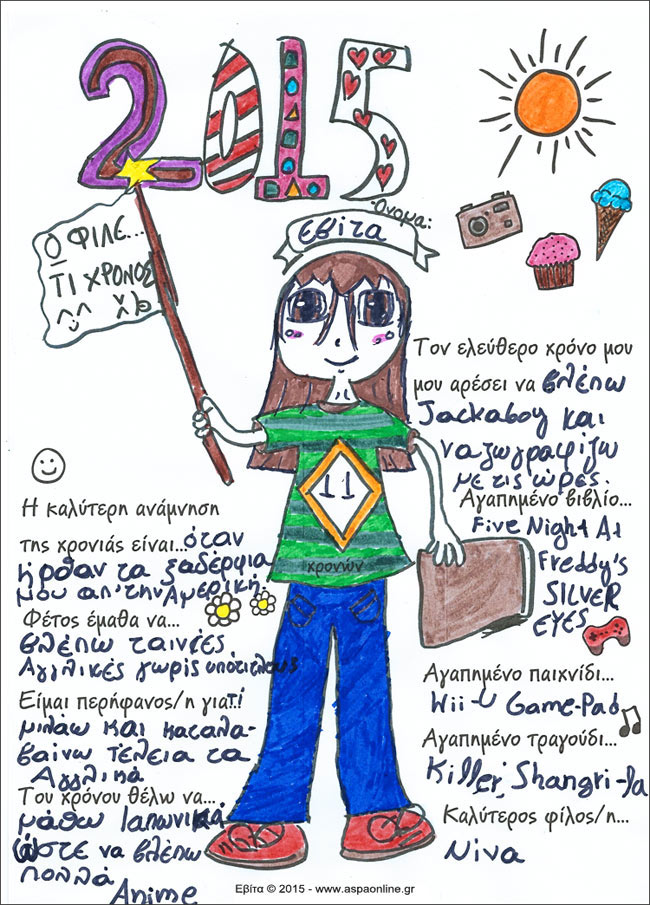 2015
Όνομα:
Εβίτα
Ο ΦΙΛΕ...
ΤΙ ΧΡΟΝΟΣ
^_^ 
11
χρονών
Η καλύτερη ανάμνηση
της χρονιάς είναι...όταν
ήρθαν τα ξαδέρφια
μου απ' την Αμερική.
Φέτος έμαθα να...
βλέπω ταινίες
Αγγλικές χωρίς υπότιτλους
Είμαι περήφανος/η γιατί
μιλάω και καταλα-
βαίνω τέλεια τα
Αγγλικά
Του χρόνου θέλω να...
μάθω Ιαπωνικά
ώστε να βλέπω
πολλά
Anime
Τον ελεύθερο χρόνο μου
μου αρέσει να βλέπω
Jackaboy και
να ζωγραφίζω
με τις ώρες.
Αγαπημένο βιβλίο...
Five Night At
Freddy's
SILVER
EYES
Αγαπημένο παιχνίδι...
Wii-U Game-Pad
Αγαπημένο τραγούδι...
Killer, Shangri-la
Καλύτερος φίλος/η...
Νίνα
Εβίτα © 2015 - www.aspaonline.gr